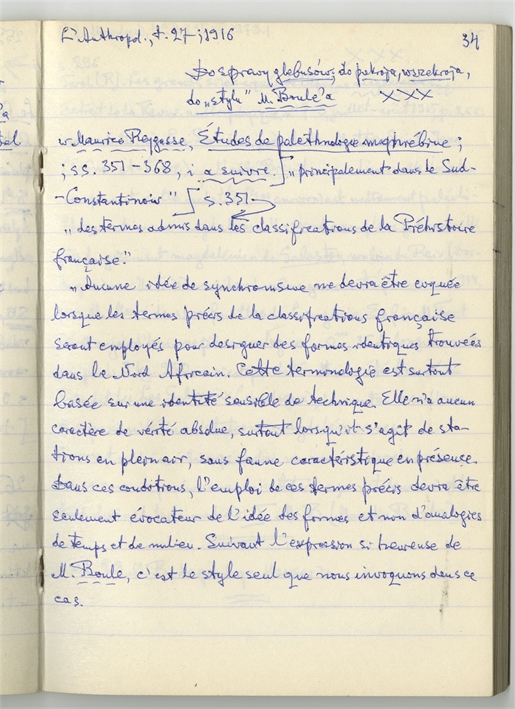 L'Anthropol., t. 27; 1916
34
Do sprawy glebusów, do pokroja, wszekroja,
do „stylu" M. Boule'a XXX
w Maurice Reygasse, Études de palethnologie maghrébine;
; ss. 351-368, i a suivre. „principalement dans le Sud-
-Constantinois" s. 351.
„des termes admis dans les classifications de la Préhistoire
française."
„Aucune idée de synchronisme ne devra être evoquée
lorsque les termes précis de la classifications française
seront employés pour designer des formes identiques trouvées
dans le Nord Africain. Cette terminologie est surtout
basée sur une identité sensible de technique. Elle n'a aucun
caractère de vérité absolue, surtout lorsqu'it s'agit de sta-
tions en plein air, sans faune caractéristique en présense.
Dans ces conditions, l'emploi de ces termes précis devra être
seulement évocateur de l'idée des formes et non d'analogies
de temps et de milieu. Suivant l'expression si heureuse de
M. Boule, c'est le style seul que nous invoquons dans ce
cas.